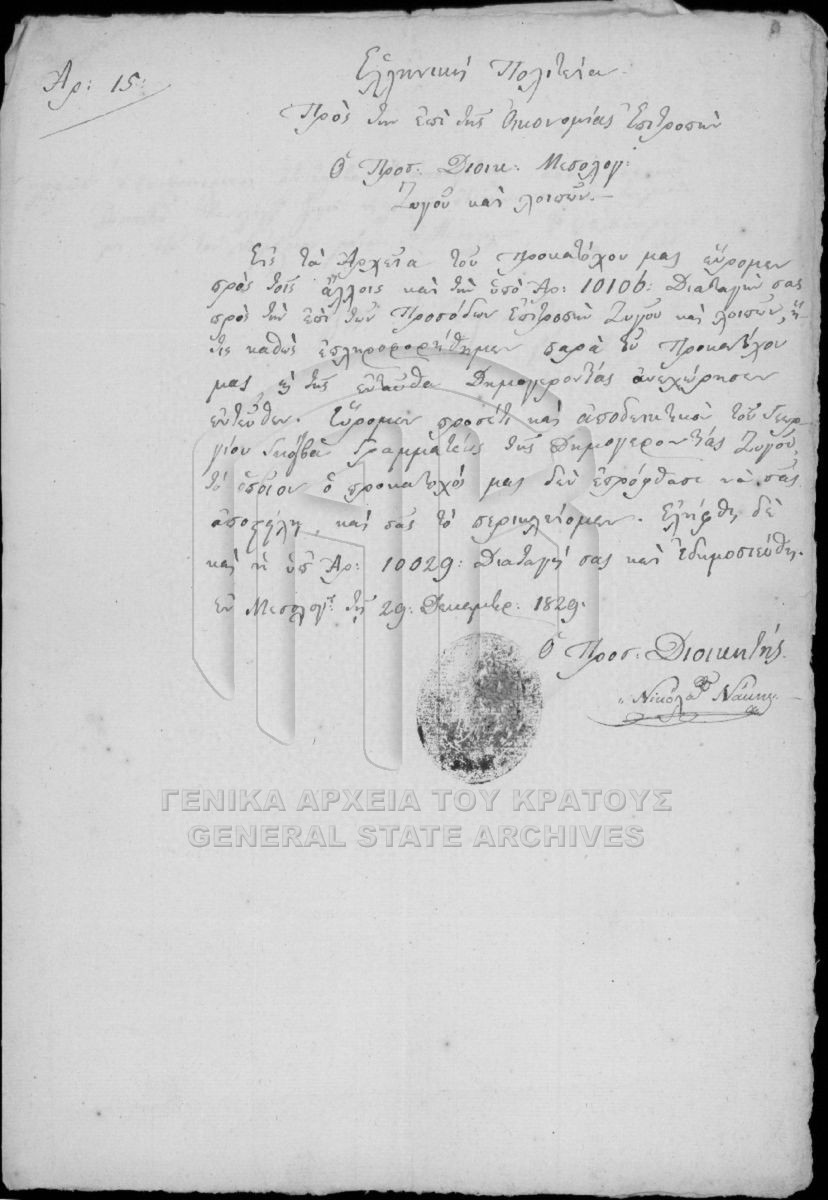 Αρ: 15:
Ἑλληνική Πολιτεία
Πρὸς τὴν ἐπὶ τῆς Οἰκονομίας Ἐπιτροπὴν
Ὁ Προσ. Διοικ: Μεσολογ:
Ζυγοῦ καὶ λοιπῶν.
Εἰς τὰ Ἀρχεῖα τοῦ Προκατόχου μας εὕρομεν
πρὸς τοῖς ἄλλοις καὶ τὴν ὑπὸ Ἀρ: 10106: Διαταγὴν σας
πρὸς τὴν ἐπὶ τῶν Προσόδων Ἐπιτροπὴν Ζυγοῦ καὶ λοιπῶν, ἥ-
τις καθὼς ἐπληροφορήθημεν παρὰ τοῦ Προκατόχου
μας ἢ τῆς ἐνταῦθα Δημογεροντίας ἀνεχώρησεν
ἐντεῦθεν. Εὕρομεν προσέτι καὶ ἀποδεικτικὸν τοῦ Γεωρ-
γίου Γραμματέως τῆς Δημογεροντίας Ζυγοῦ,
τὸ ὁποῖον ὁ προκάτοχός μας δὲν ἐπρόφθασε νὰ σᾶς
ἀποστείλῃ, καὶ σᾶς τὸ περικλείομεν. Ἐλήφθη δὲ
καὶ ἡ ὑπ Ἀρ: 10029: Διαταγή σας καὶ ἐδημοσιεύθη.
Ἐν Μεσολογ: τῇ 29: Δεκεμβρ: 1829.
Ὁ Προσ: Διοικητής
Νικόλαος Νάκης
ΓΕΝΙΚΑ ΑΡΧΕΙΑ ΤΟΥ ΚΡΑΤΟΥΣ
GENERAL STATE ARCHIVES